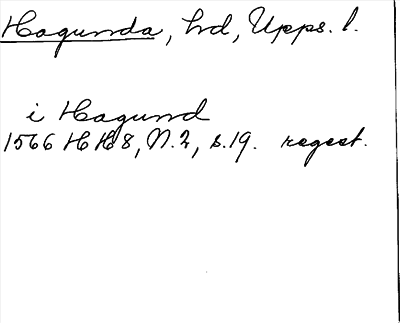 Hagunda, hd, Upps. l.
i Hagund
1566 HH 8, N. 2, s. 19. regest.